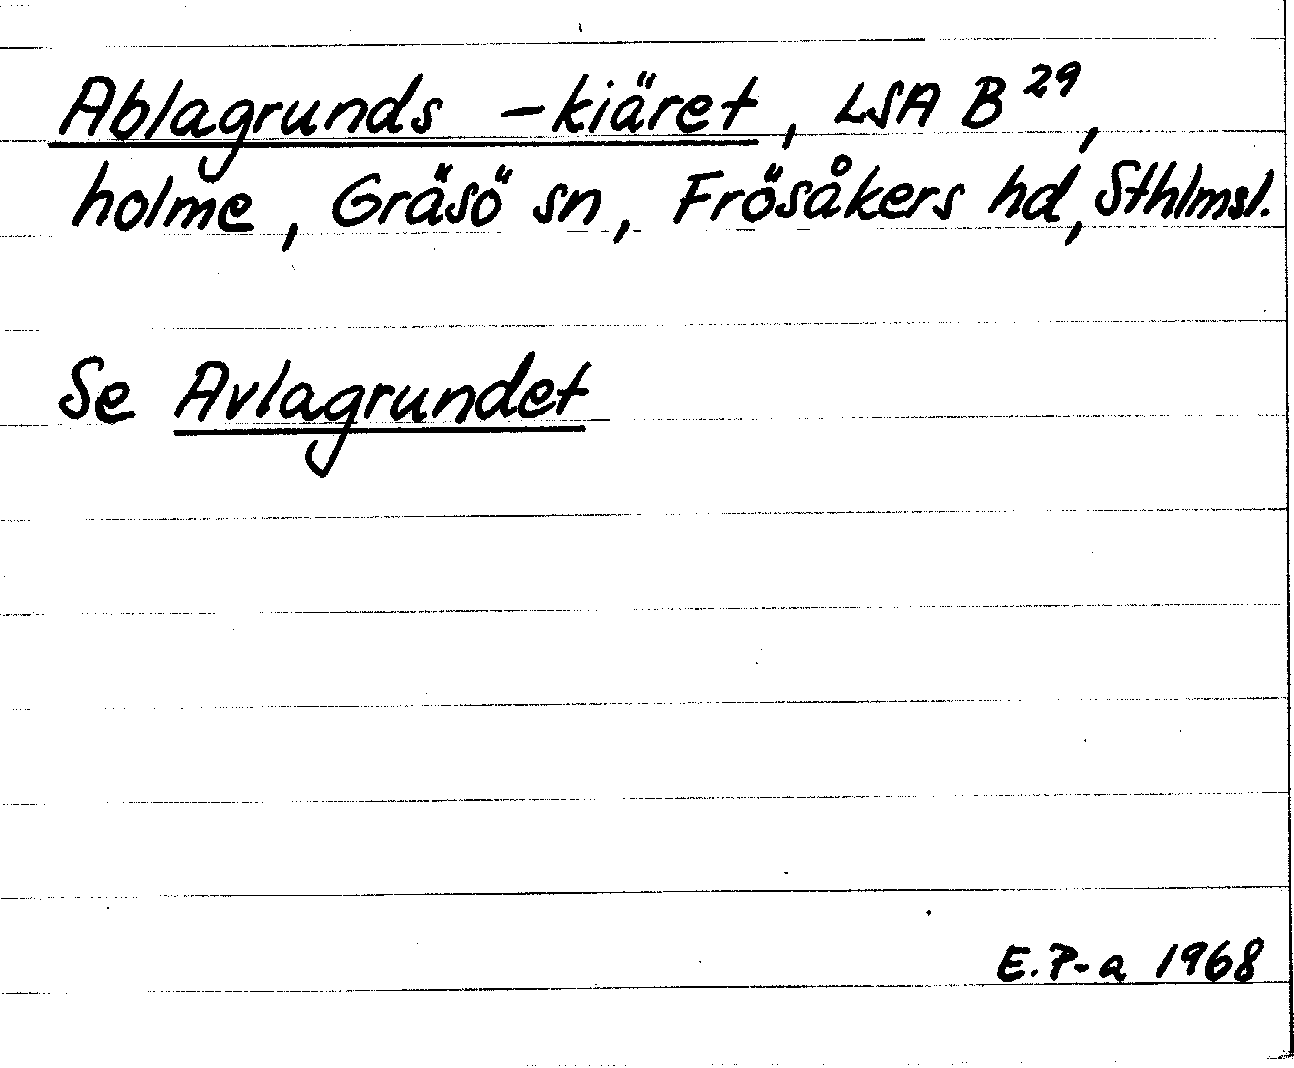 Ablagrunds -kiäret, LSA B 29,
holme, Gräsö sn, Frösåkers hd, Sthlmsl.
Se Avlagrundet
E.P-a 1968